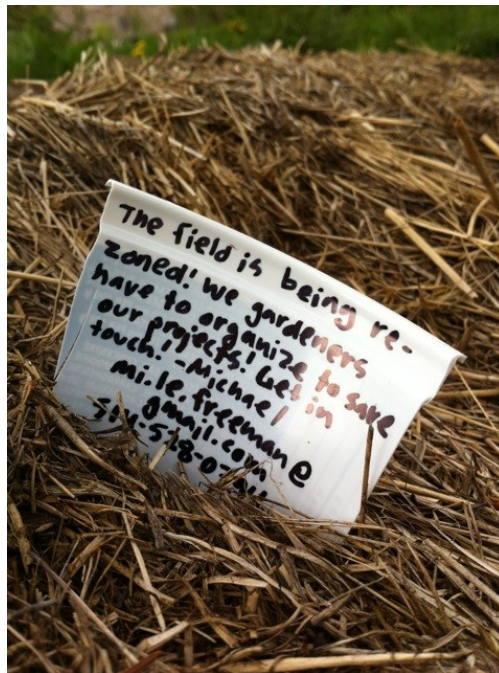 The field is being re-
zoned! We gardeners
have to organize to save
our projects! Get in
touch! -Michael
mi.le.freeman@
gmail.com